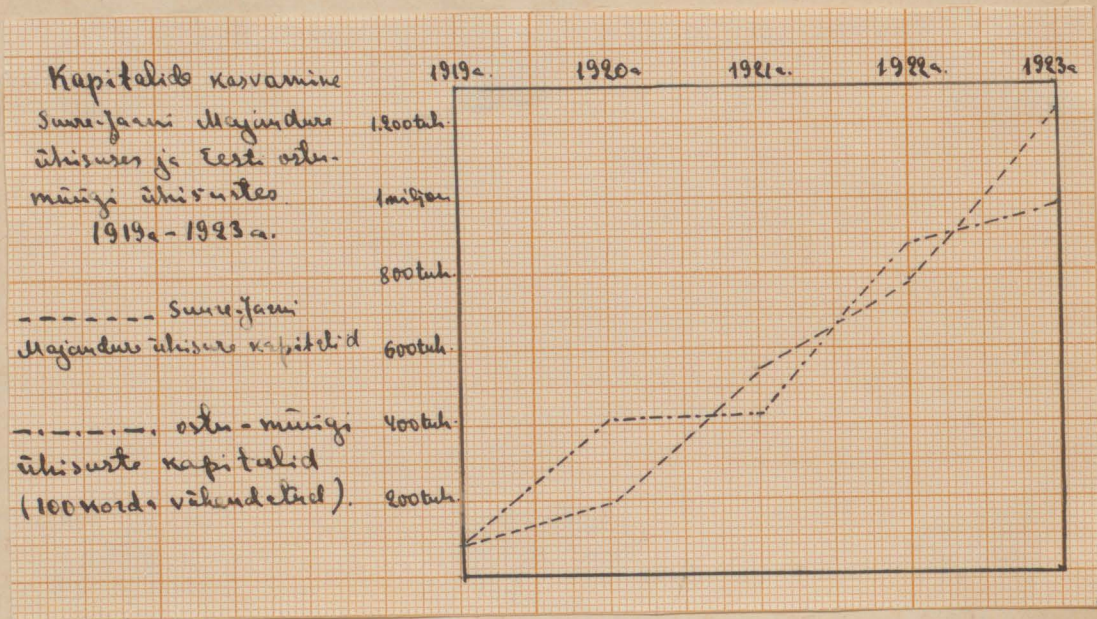 Kapitalide kasvamine
Suure-Jaani Majanduse
ühisuses ja Eesti ostu-
müügi ühisustes
1919a-1923a.
------- Suure-Jaani
Majanduse ühisuse kapitalid
-.-.-.-. ostu-müügi
ühisuste kapitalid
(100 korda vähendatud).
1919a. 1920a 1921a. 1922a. 1923a
1.200tuh.
1miljon
800tuh.
600tuh.
400tuh.
200tuh.